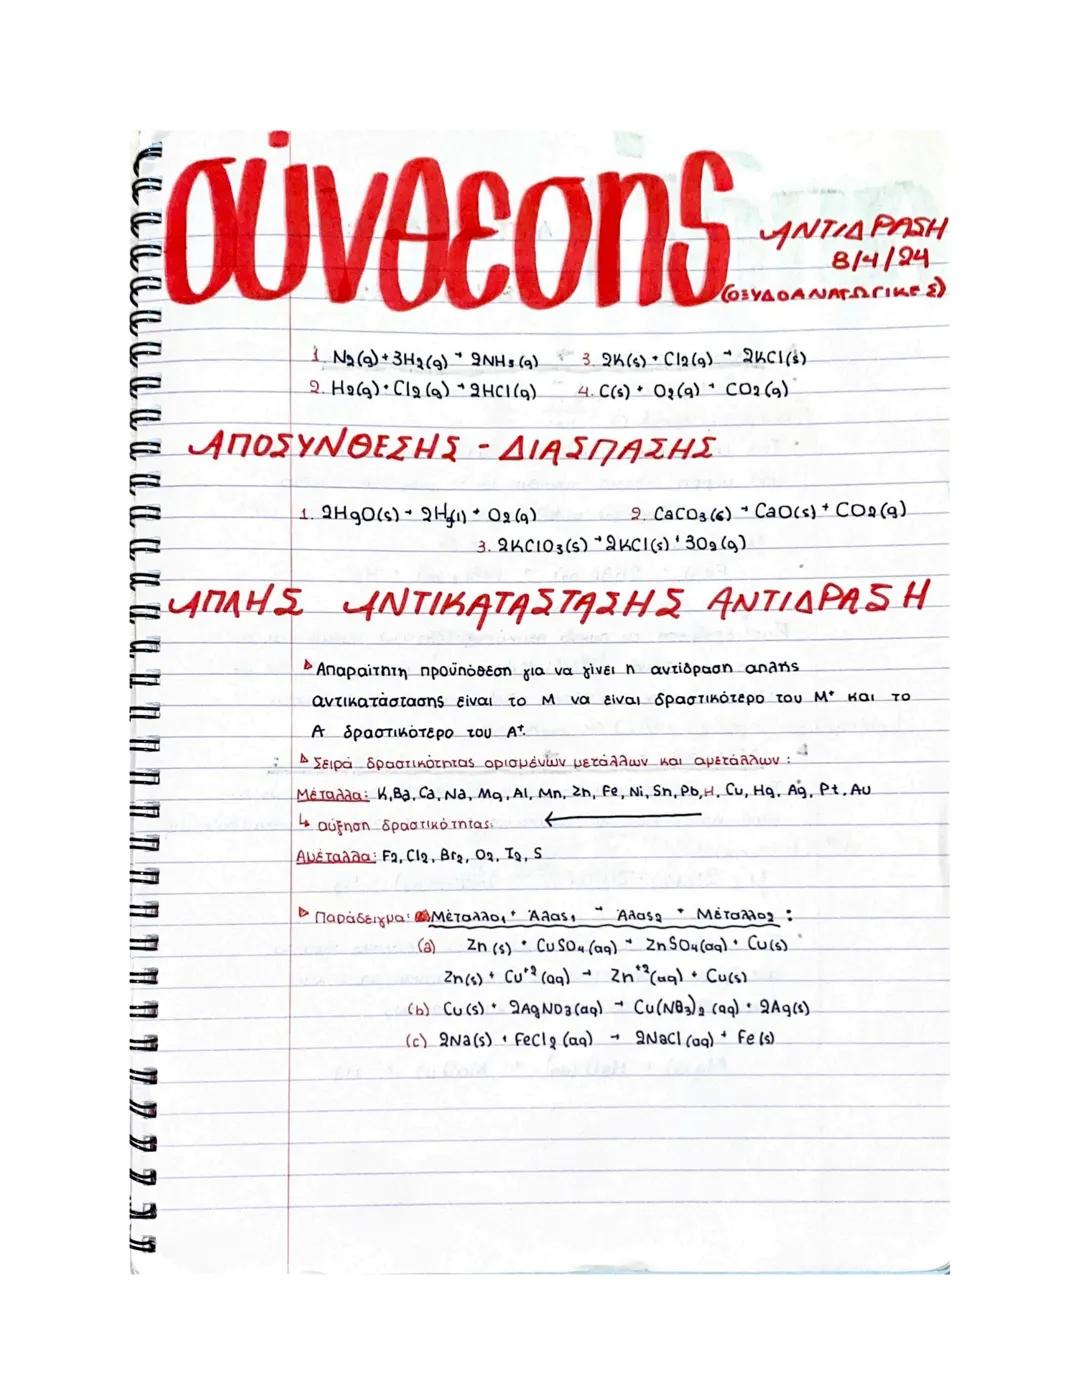 σύνθεσης ΑΝΤΙΔΡΑΣΗ
8/4/24
(ΟΞΥΔΟΑΝΑΓΩΓΙΚΕΣ)
1. N2(g) + 3H2(g) → 2NH3(g) 3. 2K(s) + Cl2(g) → 2KCl(s)
2. H2(g) + Cl2(g) → 2HCl(g) 4. C(s) + O2(g) → CO2(g)
ΑΠΟΣΥΝΘΕΣΗΣ - ΔΙΑΣΠΑΣΗΣ
1. 2HgO(s) → 2Hg(l) + O2(g) 2. CaCO3(s) → CaO(s) + CO2(g)
3. 2KClO3(s) → 2KCl(s) + 3O2(g)
ΑΠΛΗΣ ΑΝΤΙΚΑΤΑΣΤΑΣΗΣ ΑΝΤΙΔΡΑΣΗ
Απαραίτητη προϋπόθεση για να γίνει η αντίδραση απλής
αντικατάστασης είναι το Μ να είναι δραστικότερο του Μ+ και το
Α δραστικότερο του Α+.
Σειρά δραστικότητας ορισμένων μετάλλων και αμετάλλων:
Μέταλλα: K, Ba, Ca, Na, Mg, Al, Mn, Zn, Fe, Ni, Sn, Pb, H, Cu, Hg, Ag, Pt, Au
↳ αύξηση δραστικότητας: ←
Αμέταλλα: F2, Cl2, Br2, O2, I2, S
Παράδειγμα: Μέταλλο1 + Άλας1 → Άλας2 + Μέταλλο2 :
(a) Zn(s) + CuSO4(aq) → ZnSO4(aq) + Cu(s)
Zn(s) + Cu+2(aq) → Zn+2(aq) + Cu(s)
(b) Cu(s) + 2AgNO3(aq) → Cu(NO3)2(aq) + 2Ag(s)
(c) 2Na(s) + FeCl2(aq) → 2NaCl(aq) + Fe(s)